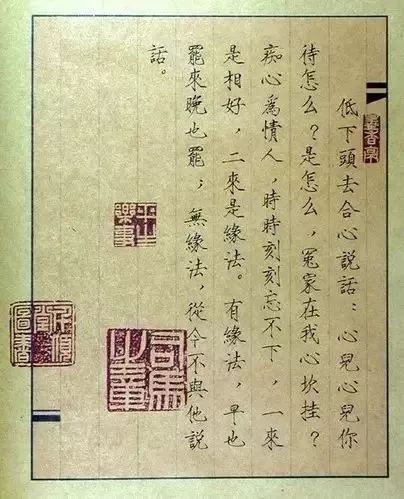 低下頭去合心説話:心兒心兒你
待怎么?是怎么,冤家在我心坎挂?
痴心爲情人,時時刻刻忘不下,一來
是相好,二來是緣法。有緣法,早也
罷來晚也罷;無緣法,從今不與他説
話。
平生樂事
司馬之章